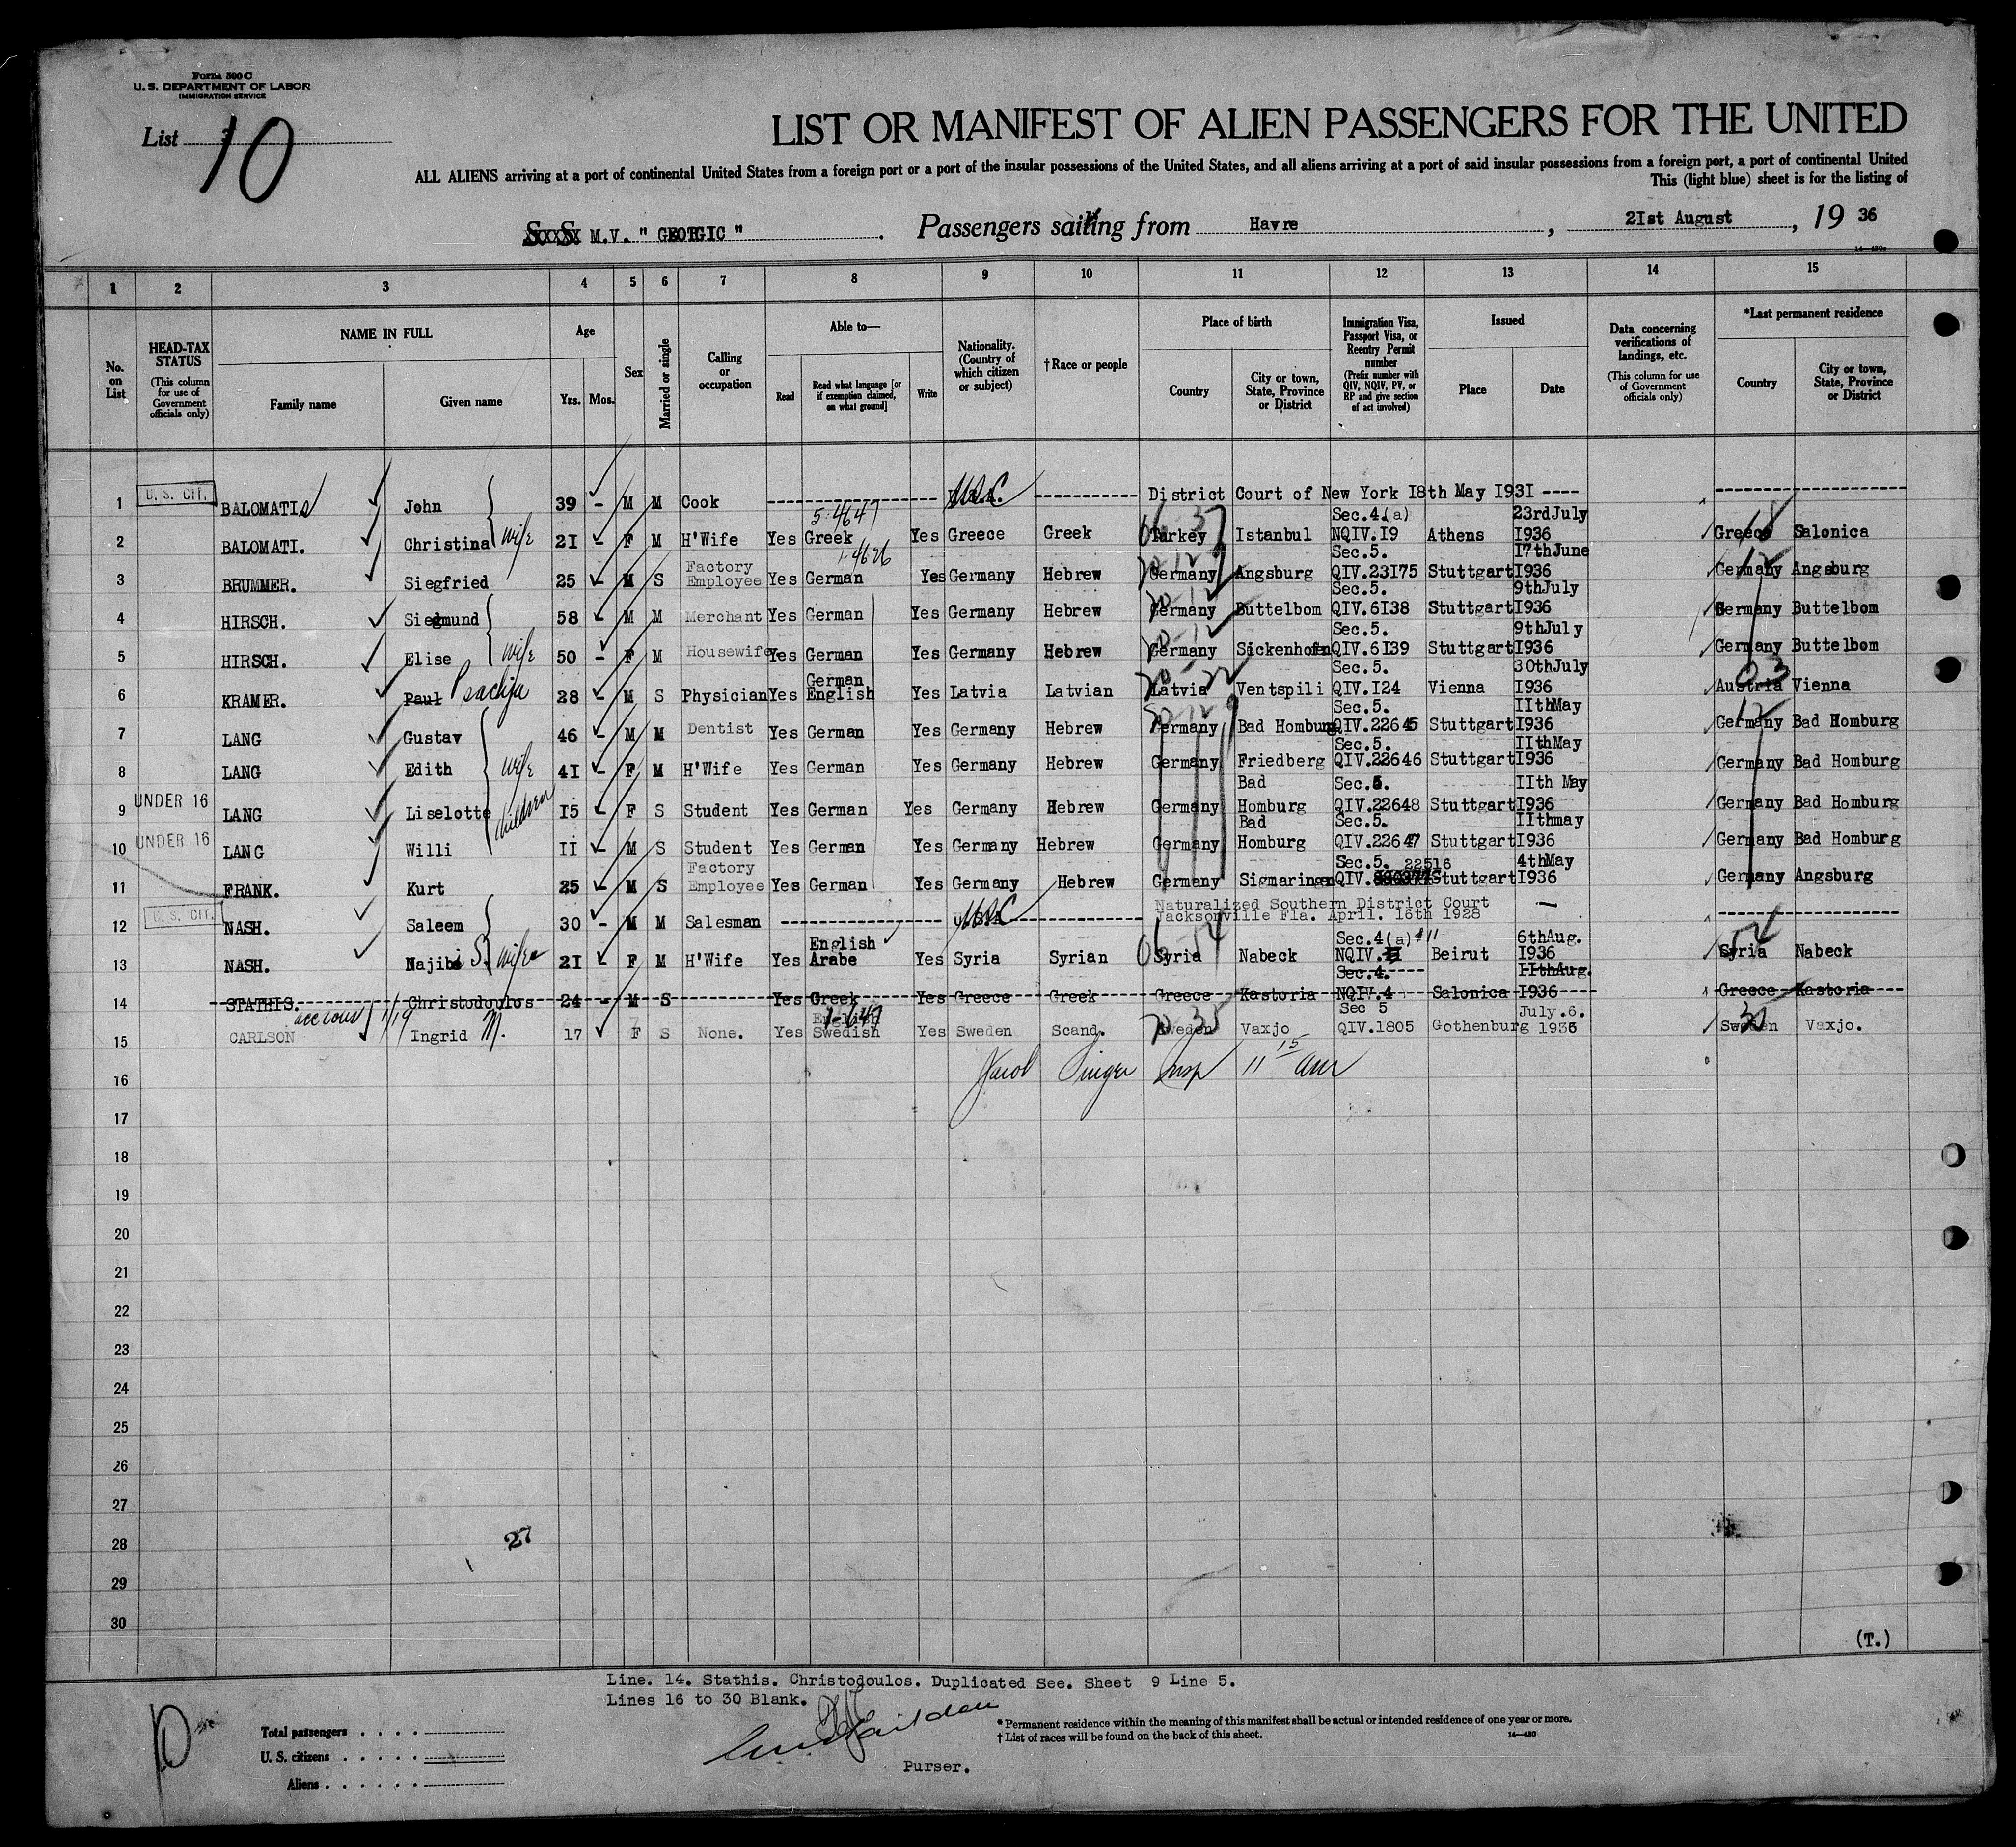 Form 500 C
U. S. DEPARTMENT OF LABOR
IMMIGRATION SERVICE
List 3
10
LIST OR MANIFEST OF ALIEN PASSENGERS FOR THE UNITED
ALL ALIENS arriving at a port of continental United States from a foreign port or a port of the insular possessions of the United States, and all aliens arriving at a port of said insular possessions from a foreign port, a port of continental United
This (light blue) sheet is for the listing of
S. S. M.V. " GEORGIC " . Passengers sailing from Havre , 21st August , 19 36
14—430a
1 2 3 4 5 6 7 8 9 10 11 12 13 14 15
No. on List
HEAD-TAX STATUS
(This column for use of Government officials only)
NAME IN FULL
Family name Given name
Age
Yrs. Mos.
Sex
Married or single
Calling or occupation
Able to—
Read Read what language [or if exemption claimed, on what ground] Write
Nationality. (Country of which citizen or subject)
† Race or people
Place of birth
Country City or town, State, Province or District
Immigration Visa, Passport Visa, or Reentry Permit number
(Prefix number with QIV, NQIV, PV, or RP and give section of act involved)
Issued
Place Date
Data concerning verifications of landings, etc.
(This column for use of Government officials only)
*Last permanent residence
Country City or town, State, Province or District
1 U. S. CIT. BALOMATIS John 39 - M M Cook U.S.C. District Court of New York I8th May I93I ----
5-4647 Sec.4.(a) 23rdJuly
2 BALOMATI. Christina wife 2I - F M H'Wife Yes Greek Yes Greece Greek Turkey Istanbul NQIV.I9 Athens I936 Greece Salonica
1-4626 Sec.5. I7thJune
3 BRUMMER. Siegfried 25 M S Factory Employee Yes German Yes Germany Hebrew Germany Angsburg QIV.23I75 Stuttgart I936 Germany Angsburg
Sec.5. 9thJuly
4 HIRSCH. Siegmund 58 M M Merchant Yes German Yes Germany Hebrew Germany Buttelbom QIV.6I38 Stuttgart I936 Germany Buttelbom
Sec.5. 9thJuly
5 HIRSCH. Elise wife 50 - F M Housewife Yes German Yes Germany Hebrew Germany Sickenhofen QIV.6I39 Stuttgart I936 Germany Buttelbom
German Sec.5. 30thJuly
6 KRAMER. Paul 28 - M S Physician Yes English Yes Latvia Latvian Latvia Ventspili QIV.I24 Vienna I936 Austria Vienna
Sec.5. IIthMay
7 LANG Gustav 46 - M M Dentist Yes German Yes Germany Hebrew Germany Bad Homburg QIV.22645 Stuttgart I936 Germany Bad Homburg
Sec.5. IIthMay
8 LANG Edith wife 4I - F M H'Wife Yes German Yes Germany Hebrew Germany Friedberg QIV.22646 Stuttgart I936 Germany Bad Homburg
Bad Sec.5. IIth May
9 UNDER 16 LANG Liselotte children I5 F S Student Yes German Yes Germany Hebrew Germany Homburg QIV.22648 Stuttgart I936 Germany Bad Homburg
Bad Sec.5. IIthmay
10 UNDER 16 LANG Willi II M S Student Yes German Yes Germany Hebrew Germany Homburg QIV.22647 Stuttgart I936 Germany Bad Homburg
Sec.5. 22516 4thMay
11 FRANK. Kurt 25 - M S Factory Employee Yes German Yes Germany Hebrew Germany Sigmaringen QIV. Stuttgart I936 Germany Angsburg
12 U. S. CIT. NASH. Saleem 30 - M M Salesman U.S.C. Naturalized Southern District Court Jacksonville Fla. April. 16th 1928
English Sec.4(a) #11 6thAug.
13 NASH. Najibe S. wife 2I F M H'Wife Yes Arabe Yes Syria Syrian Syria Nabeck NQIV. Beirut I936 Syria Nabeck
Sec.4. IIthAug.
14 STATHIS. Christodoulos 24 - M S Yes Greek Yes Greece Greek Greece Kastoria NQIV.4 Salonica I936 Greece Kastoria
English Sec 5 July.6.
15 CARLSON Ingrid M. 17 F S None. Yes Swedish Yes Sweden Scand. Sweden Vaxjo QIV.1805 Gothenburg 1936 Sweden Vaxjo.
16 Jacob Singer Insp 11 15 am
17
18
19
20
21
22
23
24
25
26
27
28 27
29
30
(T.)
Line. 14. Stathis. Christodoulos. Duplicated See. Sheet 9 Line 5.
Lines 16 to 30 Blank.
10
Total passengers . . . .
U. S. citizens . . . . .
Aliens . . . . . .
Purser.
* Permanent residence within the meaning of this manifest shall be actual or intended residence of one year or more.
† List of races will be found on the back of this sheet.
14—430